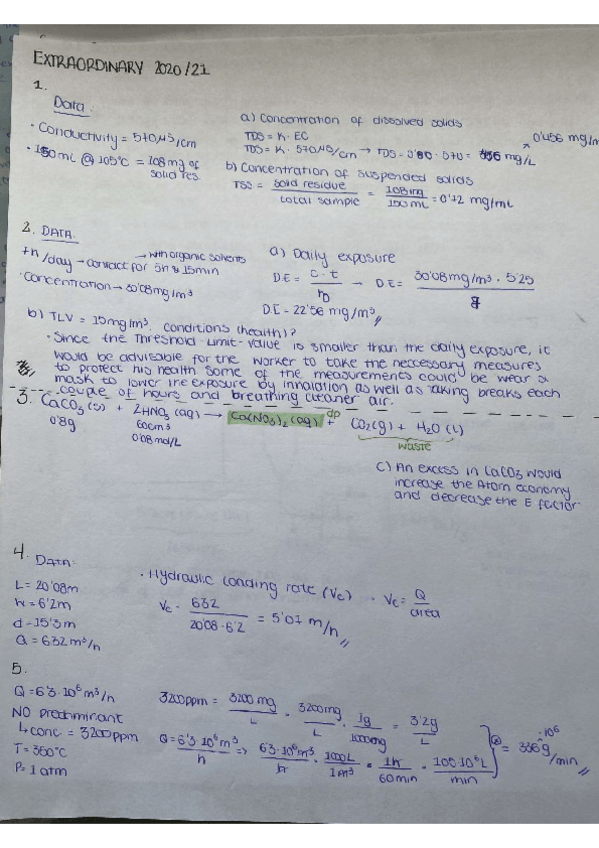 EXTRAORDINARY 2020/21
1.
Data
· Conductivity = 570 µS/cm
· 150mL @ 105°C = 108 mg of
solid res.
a) Concentration of dissolved solids
TDS = K · EC
TDS = K · 570µS/cm → TDS = 0'80 · 570 = 456 mg/L
0'456 mg/m
b) Concentration of suspended solids
TSS = solid residue / total sample = 108mg / 150 mL = 0'72 mg/mL
2. DATA.
7h/day → contact for 5h & 15min
→ with organic solvents
· Concentration → 30'08mg/m³
a) Daily exposure
DE = C · t / 8 → DE = 30'08mg/m³ · 5'25 / 8
DE = 22'56 mg/m³ //
b) TLV = 15mg/m³. conditions (health)?
· Since the Threshold Limit-Value is smaller than the daily exposure, it
would be advisable for the worker to take the neccessary measures
to protect his health some of the measurements could be wear a
mask to lower the exposure by inhalation as well as taking breaks each
couple of hours and breathing cleaner air.
3. CaCO₃(s) + 2HNO₃(aq) → Ca(NO₃)₂(aq) + CO₂(g) + H₂O(l)
dp
0'8g
60cm³
0'08mol/L
waste
c) An excess in CaCO₃ would
increase the Atom economy
and decrease the E factor.
4. Data:
L = 20'08m
W = 6'2m
d = 15'3m
Q = 632m³/h
· Hydraulic loading rate (Vc) · Vc = Q / area
Vc = 632 / 20'08 · 6'2 = 5'07 m/h //
5.
Q = 6'3·10⁶m³/h
NO predominant
↳ conc = 3200ppm
T = 350°C
P = 1 atm
3200ppm = 3200mg / L = 3200mg / L · 1g / 1000mg = 3'2g / L
Q = 6'3·10⁶m³ / h ⇒ 6'3·10⁶m³ / h · 1000L / 1m³ · 1h / 60min = 105·10⁶L / min
= 336·10⁶ g/min //